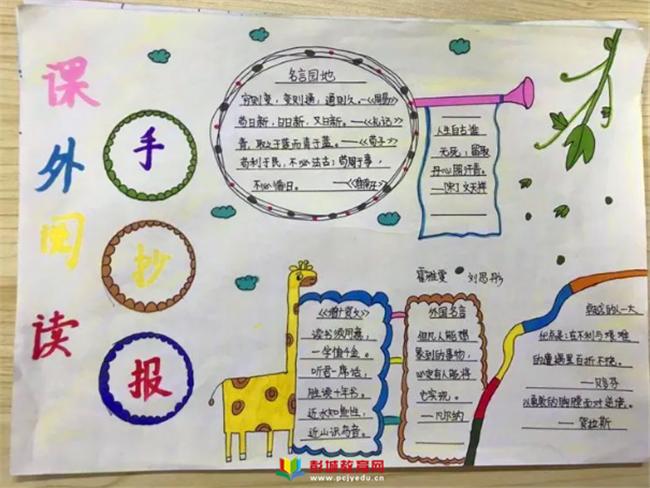 课外阅读
手抄报
名言园地
穷则变，变则通，通则久。—《周易》
苟日新，日日新，又日新。—《礼记》
青，取之于蓝而青于蓝。—《荀子》
苟利于民，不必法古；苟周于事，
不必循旧。—《淮南子》
人生自古谁
无死；留取
丹心照汗青。
—[宋]文天祥
霍雅雯 刘思彤
《增广贤文》
读书须用意，
一字值千金。
听君一席话，
胜读十年书。
近水知鱼性，
近山识鸟音。
外国名言
但凡人能想
象到的事物，
必定有人能将
它实现。
—凡尔纳
卓越的人一大
优点是：在不利与艰难
的遭遇里百折不挠。
—贝多芬
以勇敢的胸膛面对逆境。
—贺拉斯
彭城教育网
www.pcjyedu.cn